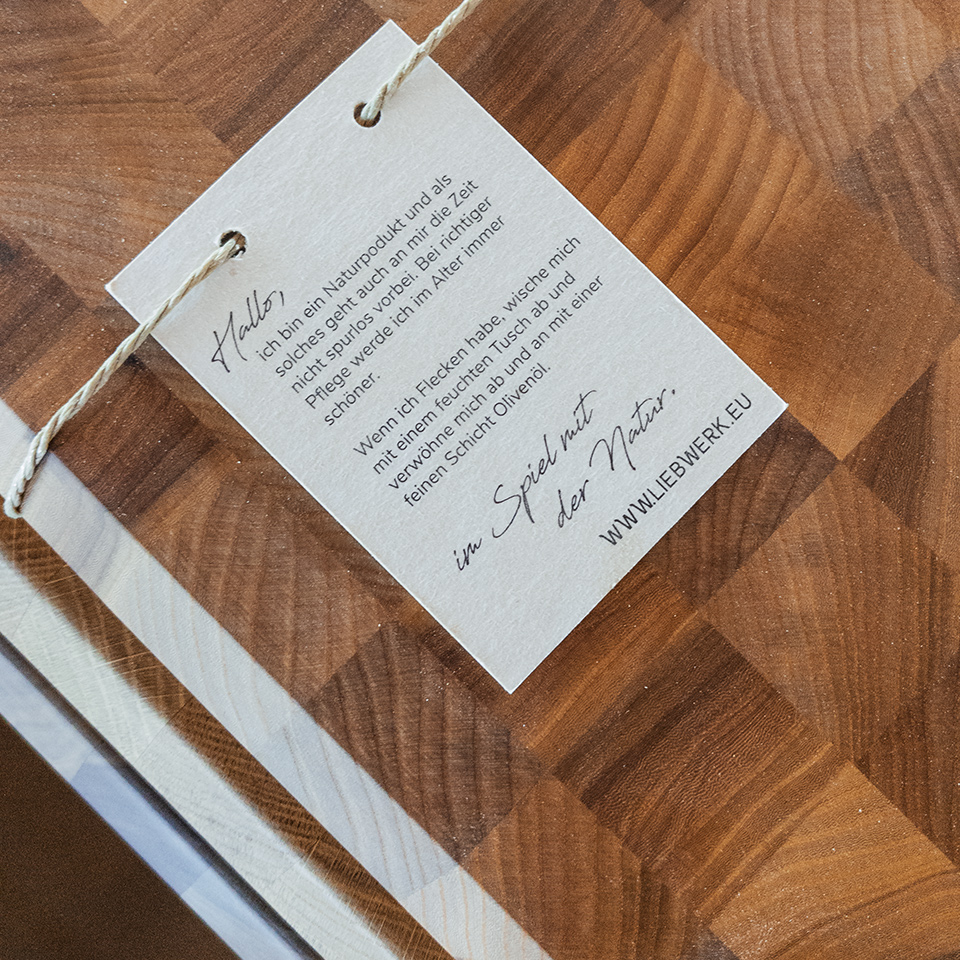 Hallo,
ich bin ein Naturpodukt und als
solches geht auch an mir die Zeit
nicht spurlos vorbei. Bei richtiger
Pflege werde ich im Alter immer
schöner.
Wenn ich Flecken habe, wische mich
mit einem feuchten Tusch ab und
verwöhne mich ab und an mit einer
feinen Schicht Olivenöl.
im Spiel mit
der Natur.
WWW.LIEBWERK.EU